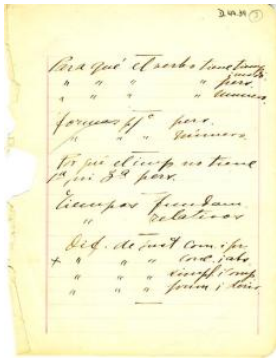 D.49.39 3
Para qué el verbo tiene tiemp.
modo
" " " " pers.
" " " " número.
formas pª pers.
" " " número.
Por qué el imp. no tiene
1ª ni 3ª pers.
Tiempos fundam.
" relativos
Dif. de inst com. i pr
+ " " conc. i abs
" " " simpl. i comp
" " "